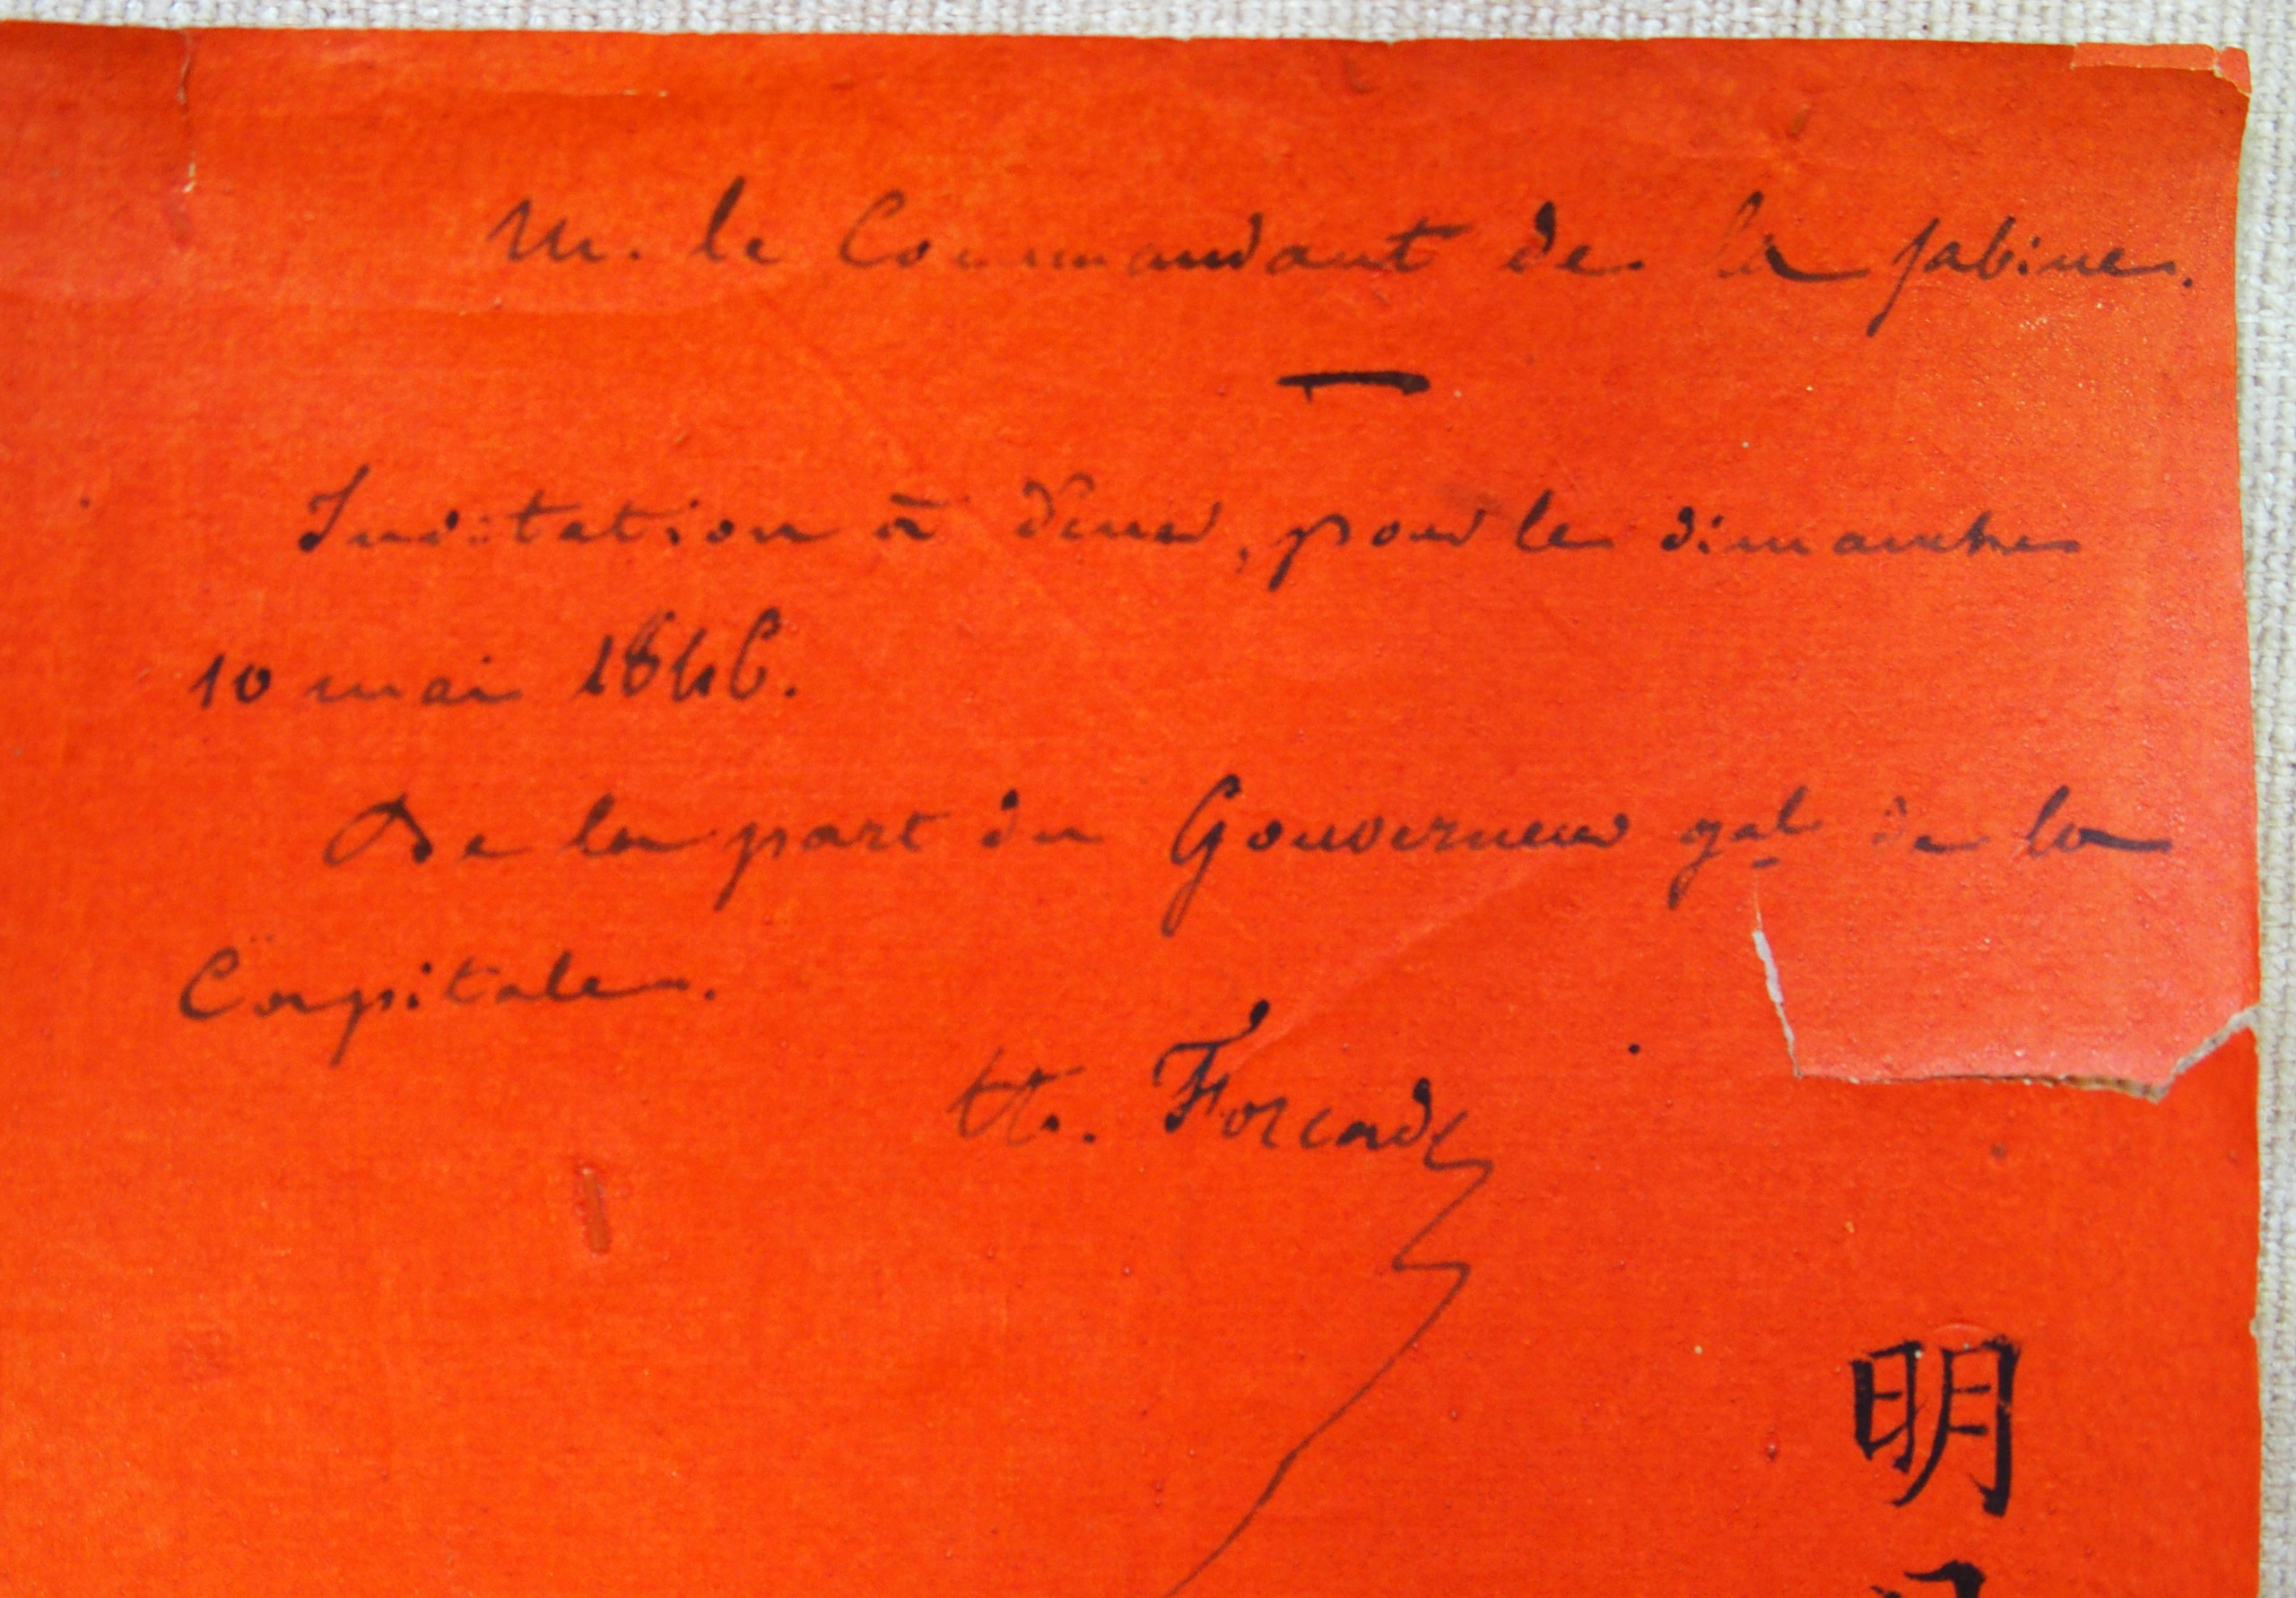 M. le Commandant de la Sabine.
Invitation à diner, pour le dimanche
10 mai 1846.
De la part du Gouverneur gal de la
Capitale.
Th. Forcade
明